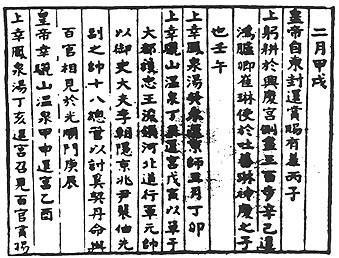 二月甲戌
皇帝自東封還賞賜有差丙子
上躬耕於興慶宮側盡三百步辛己還
鴻臚卿崔琳使於吐蕃琳神慶之子
也壬午
上幸鳳泉湯還京師三月丁卯
上幸驪山溫泉丁還宮戊寅以單于
大都護忠王浚領河北道行軍元帥
以御史大夫李朝隱京兆尹裴伯先
副之帥十八總管以討奚契丹命與
百官相見於光順門庚辰
皇帝幸驪山溫泉甲申還宮乙酉
上幸鳳泉湯丁亥還宮召見百官賞賜